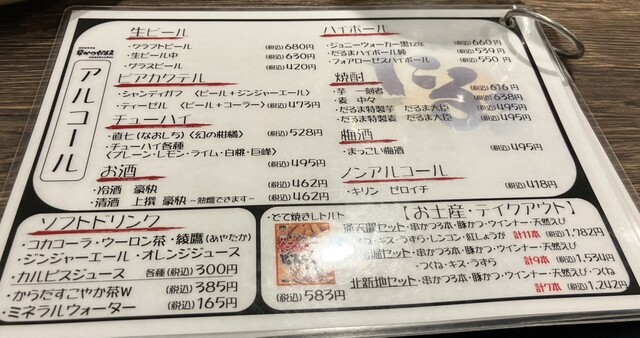 串かつだるま
アルコール
生ビール
・クラフトビール (税込)680円
・生ビール中 (税込)630円
・グラスビール (税込)420円
ビアカクテル
・シャンディガフ 〈ビール+ジンジャーエール〉
・ディーゼル 〈ビール+コーラー〉 (税込)473円
チューハイ
・直七(なおしち)〈幻の柑橘〉 (税込)528円
・チューハイ各種
〈プレーン・レモン・ライム・白桃・巨峰〉
(税込)495円
お酒
・冷酒 豪快 (税込)462円
・清酒 上撰 豪快 ~熱燗できます~ (税込)462円
ハイボール
・ジョニーウォーカー黒12年 (税込)660円
・だるまハイボール (税込)539円
・フォアローゼスハイボール (税込)550円
焼酎
・芋 一刻者 (税込)616円
・麦 中々 (税込)638円
・だるま特製芋 だるま大臣 (税込)495円
・だるま特製麦 だるま大臣 (税込)495円
梅酒
・まっこい梅酒 (税込)495円
ノンアルコール
・キリン ゼロイチ (税込)418円
ソフトドリンク
・コカコーラ・ウーロン茶・綾鷹(あやたか)
・ジンジャーエール・オレンジジュース
・カルピスジュース 各種(税込)300円
・からだすこやか茶W (税込)385円
・ミネラルウォーター (税込)165円
どて焼きレトルト
(税込)583円
【お土産・テイクアウト】
通天閣セット・串かつ3本・豚かつ・ウインナー・天然えび
つくね・キス・うずら・レンコン・紅しょうが 計11本 (税込)1,782円
セット・串かつ2本・豚かつ・ウインナー・天然えび
つくね・キス・うずら 計9本 (税込)1,534円
北新地セット・串かつ2本・豚かつ・ウインナー・天然えび・つくね
計7本 (税込)1,242円